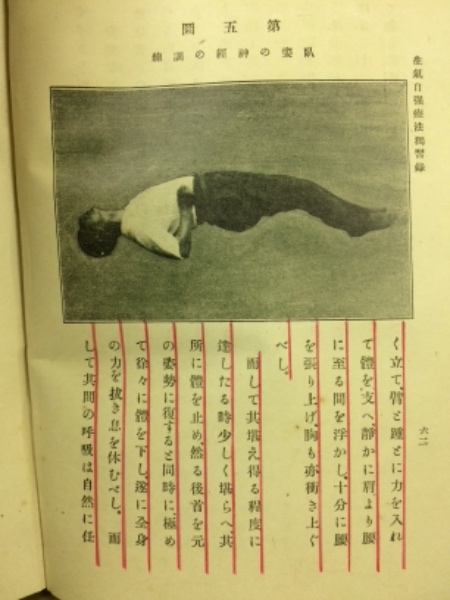 生氣自强療法獨習錄
六二
第五圖
臥姿の神經の訓練
く立て、臂と踵とに力を入れ
て體を支へ、靜かに肩より腰
に至る間を浮かし、十分に腰
を張り上げ、胸も亦衝き上ぐ
べし。
而して其堪え得る程度に
達したる時少しく堪らへ、其
所に體を止め、然る後首を元
の姿勢に復すると同時に、極め
て徐々に體を下し、遂に全身
の力を拔き息を休むべし。而
して其間の呼吸は自然に任